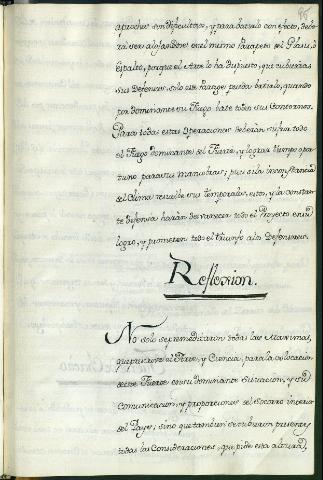 aproche sin dificultar, y para batirlo con efecto, debe
rá ser alojandose en el mismo Parapeto del Glasis, ó
Espalto, porque el Arte lo ha dispuesto, que cubiertas
sus Defensas, solo este Parage pueda batirlo, quando
por dominante su Fuego bate todos sus Contornos.
Para todas estas Operaciones deberán sufrir todo
el Fuego dominante del Fuerte, y lograr tiempo opor
tuno para sus maniobras; pues si la inconstancia
del Clima remite sus temporales, estos, y la constan
te defensa harán desvanecer todo el Proyecto en su
logro, y prometen todo el triunfo a los Defensores.
Reflexion.
No solo se premeditarón todas las Maximas,
que previene el Arte, y Ciencia, para la colocacion
de este Fuerte en su dominante Situacion, y su
Comunicacion, y proporciones del Socorro interior
del Payz; sino que tambien se tubieron presentes
todas las Consideraciones, que pide esta altura,